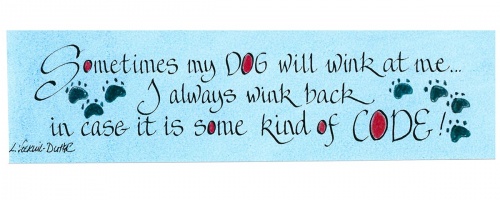 Sometimes my DOG will wink at me...
I always wink back
in case it is some kind of CODE!